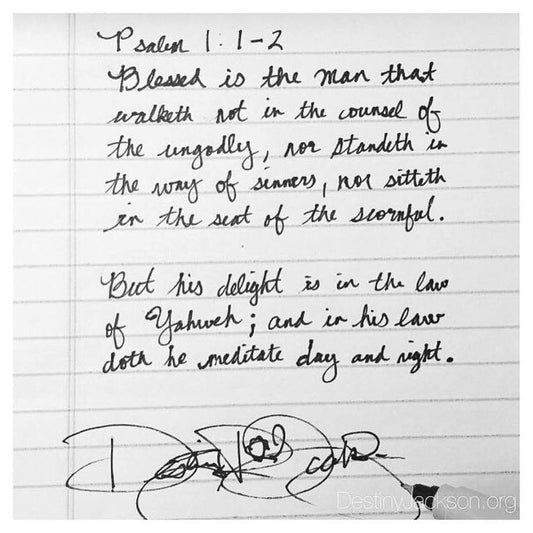 Psalm 1:1-2
Blessed is the man that
walketh not in the counsel of
the ungodly, nor standeth in
the way of sinners, nor sitteth
in the seat of the scornful.
But his delight is in the law
of Yahweh; and in his law
doth he meditate day and night.
DestinyJackson.org